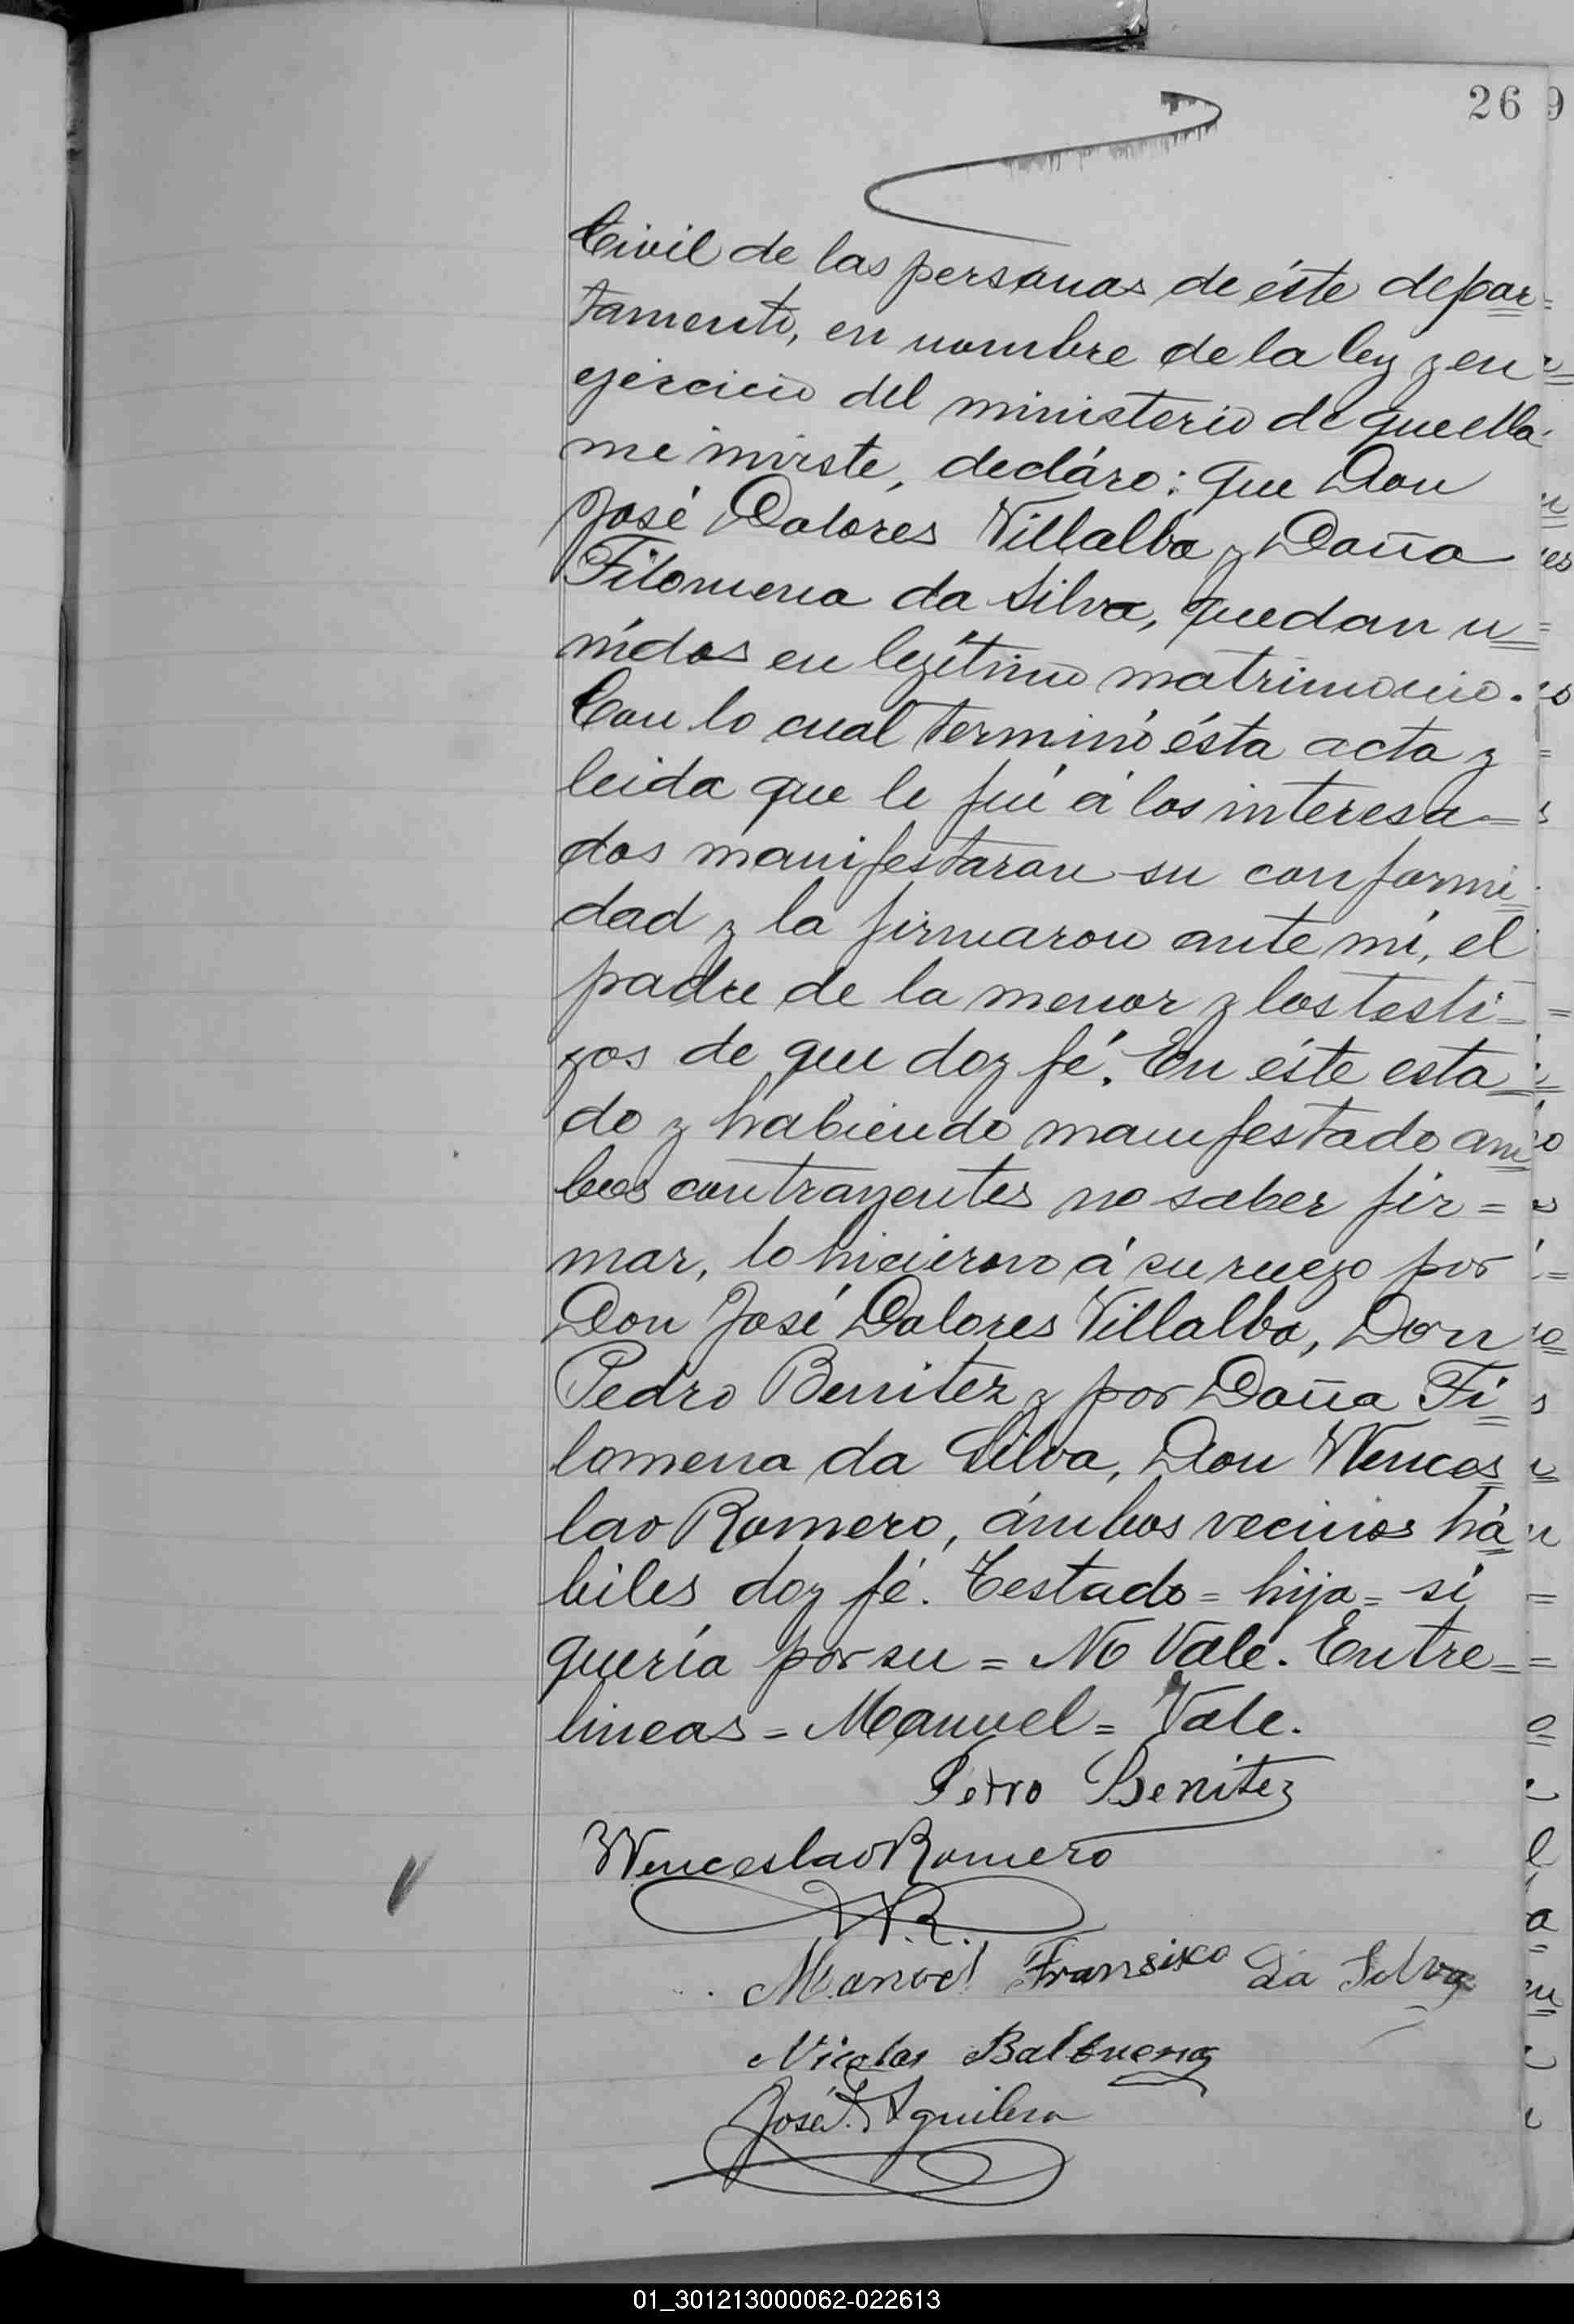 26 9
Civil de las personas de éste depar=
tamento, en nombre de la ley y en
ejercicio del ministerio de que ella
me inviste, decláro: que Don
José Dolores Villalba y Doña
Filomena da Silva, quedan u=
nidos en legítimo matrimonio.
Con lo cual terminó ésta acta y
leida que le fué á los interesa=
dos manifestaron su conformi=
dad y la firmaron ante mí, el
padre de la menor y los testi=
gos de que doy fé. En éste esta=
do y habiendo manifestado am=
bos contrayentes no saber fir=
mar, lo hicieron á su ruego por
Don José Dolores Villalba, Don
Pedro Benitez y por Doña Fi=
lomena da Silva, Don Wences=
lao Romero, ámbos vecinos há=
biles doy fé. Testado= hija= si
quería por su = No Vale. Entre=
lineas = Manuel = Vale.
Petro Benitez
Wenceslao Romero
W.R.
Manoel Fransisco Da Silva
Nicolas Balbuena
José Aguilera
01_301213000062-022613